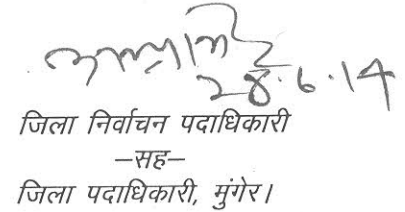 28.6.14
जिला निर्वाचन पदाधिकारी
–सह–
जिला पदाधिकारी, मुंगेर।